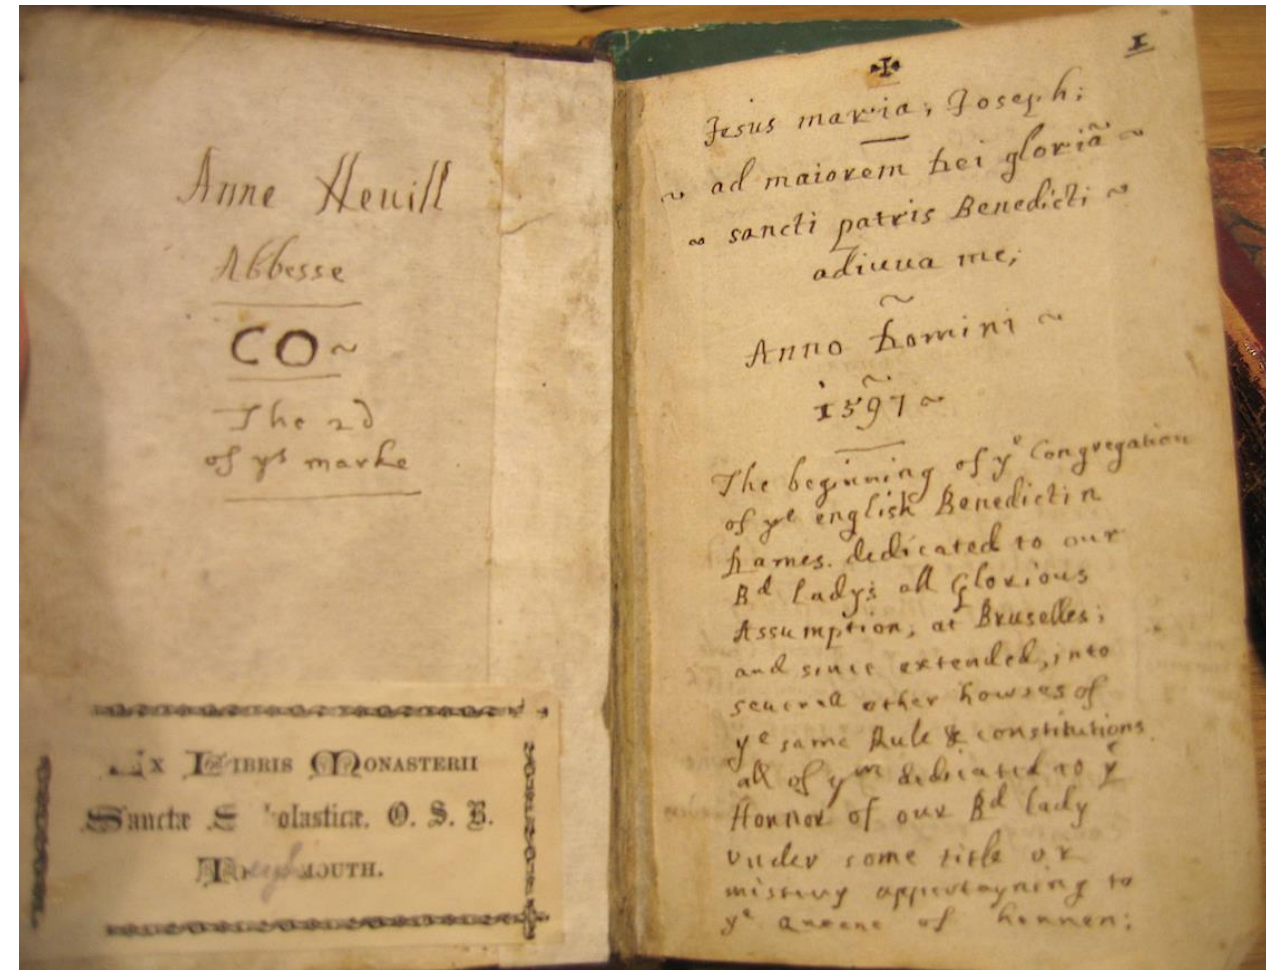 Anne Neuill
Abbesse
CO ~
The 2d
of ys marke
Ex Libris Monasterii
Sanctæ S olasticæ. O. S. B.
MOUTH.
1
Jesus maria; Joseph;
~ ad maiorem Dei gloriã ~
~ sancti patris Benedicti ~
adiuua me;
Anno Domini ~
1597 ~
The beginning of ye Congregation
of ye english Benedictin
Dames. dedicated to our
Bd ladys all Glorious
Assumption, at Bruselles;
and since extended, into
seuerall other howses of
ye same Rule & constitutions
all of ym dedicated to ye
Honnor of our Bd lady
vnder some title or
mistery appertayning to
ye Queene of heauen;